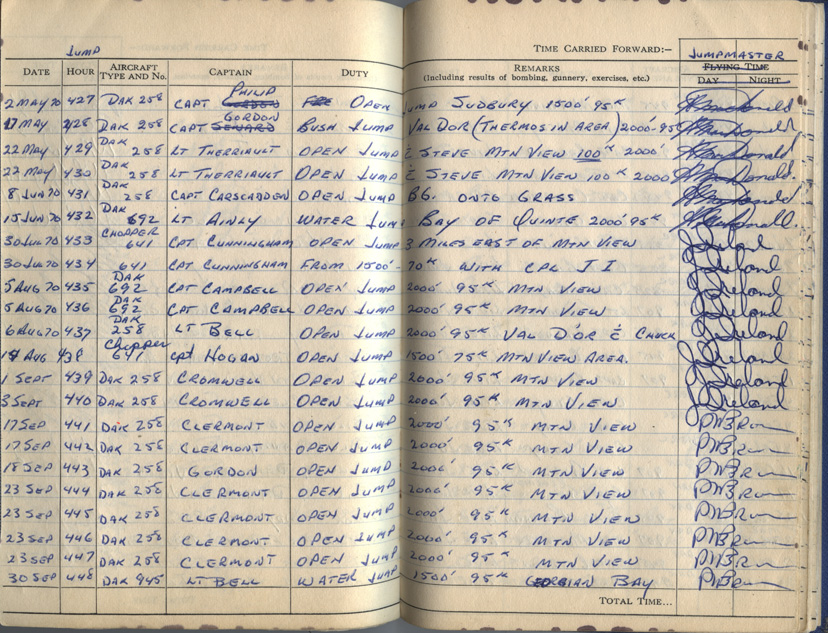 JUMP
TIME CARRIED FORWARD:—
JUMPMASTER
FLYING TIME
DATE HOUR AIRCRAFT TYPE AND No. CAPTAIN DUTY REMARKS (Including results of bombing, gunnery, exercises, etc.) DAY NIGHT
2 MAY 70 427 DAK 258 CAPT PHILIP OPEN JUMP SUDBURY 1500' 95K
17 MAY 428 DAK 258 CAPT GORDON BUSH JUMP VAL DOR (THERMOS IN AREA) 2000-95K
22 MAY 429 DAK 258 LT THERRIAULT OPEN JUMP C̄ STEVE MTN VIEW 100K 2000'
22 MAY 430 DAK 258 LT THERRIAULT OPEN JUMP C̄ STEVE MTN VIEW 100K 2000
8 JUN 70 431 DAK 258 CAPT CARSCADDEN OPEN JUMP BG. ONTO GRASS
15 JUN 70 432 DAK 692 LT AINLY WATER JUMP BAY OF QUINTE 2000' 95K
30 JUL 70 433 CHOPPER 641 CPT CUNNINGHAM OPEN JUMP 3 MILES EAST OF MTN VIEW J Ireland
30 JUL 70 434 641 CPT CUNNINGHAM FROM 1500'- 70K WITH CPL J I J Ireland
5 AUG 70 435 DAK 692 CPT CAMPBELL OPEN JUMP 2000' 95K MTN VIEW J Ireland
5 AUG 70 436 DAK 692 CPT CAMPBELL OPEN JUMP 2000' 95K MTN VIEW J Ireland
6 AUG 70 437 DAK 258 LT BELL OPEN JUMP 2000' 95K VAL D'OR C̄ CHUCK J Ireland
19 AUG 438 Chopper 641 cpt HOGAN OPEN JUMP 1500' 75K MTN VIEW AREA. J Ireland
1 SEPT 439 DAK 258 CROMWELL OPEN JUMP 2000' 95K MTN VIEW J Ireland
3 SEPT 440 DAK 258 CROMWELL OPEN JUMP 2000' 95K MTN VIEW J Ireland
17 SEP 441 DAK 258 CLERMONT OPEN JUMP 2000' 95K MTN VIEW PWBrown
17 SEP 442 DAK 258 CLERMONT OPEN JUMP 2000' 95K MTN VIEW PWBrown
18 SEP 443 DAK 258 GORDON OPEN JUMP 2000' 95K MTN VIEW PWBrown
23 SEP 444 DAK 258 CLERMONT OPEN JUMP 2000' 95K MTN VIEW PWBrown
23 SEP 445 DAK 258 CLERMONT OPEN JUMP 2000' 95K MTN VIEW PWBrown
23 SEP 446 DAK 258 CLERMONT OPEN JUMP 2000' 95K MTN VIEW PWBrown
23 SEP 447 DAK 258 CLERMONT OPEN JUMP 2000' 95K MTN VIEW PWBrown
30 SEP 448 DAK 945 LT BELL WATER JUMP 1500' 95K GEORGIAN BAY PWBrown
TOTAL TIME...